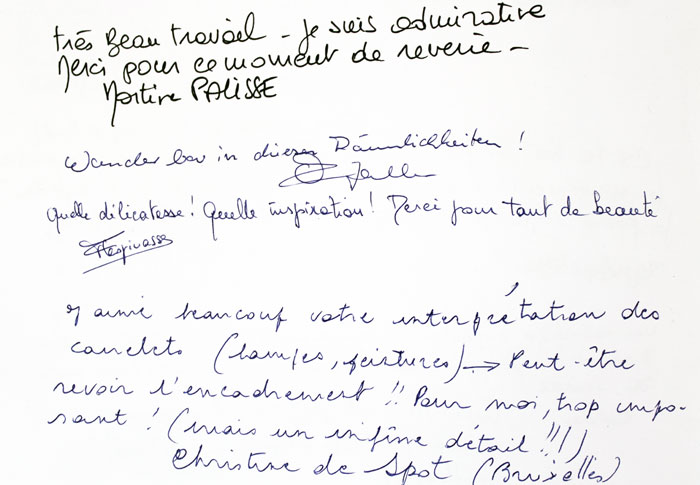 très Beau travail - Je suis admirative
Merci pour ce moment de reverie -
Martine PALISSE
Wunderbar in diesen Räumlichkeiten !
Quelle délicatesse ! Quelle inspiration ! Merci pour tant de beauté
J'aime beaucoup votre interprétation des
(lampes, peintures) → Peut-être
revoir l'encadrement !! Pour moi, trop impo-
sant ! (mais un infime détail !!!)
Christine de Spot (Bruxelles)